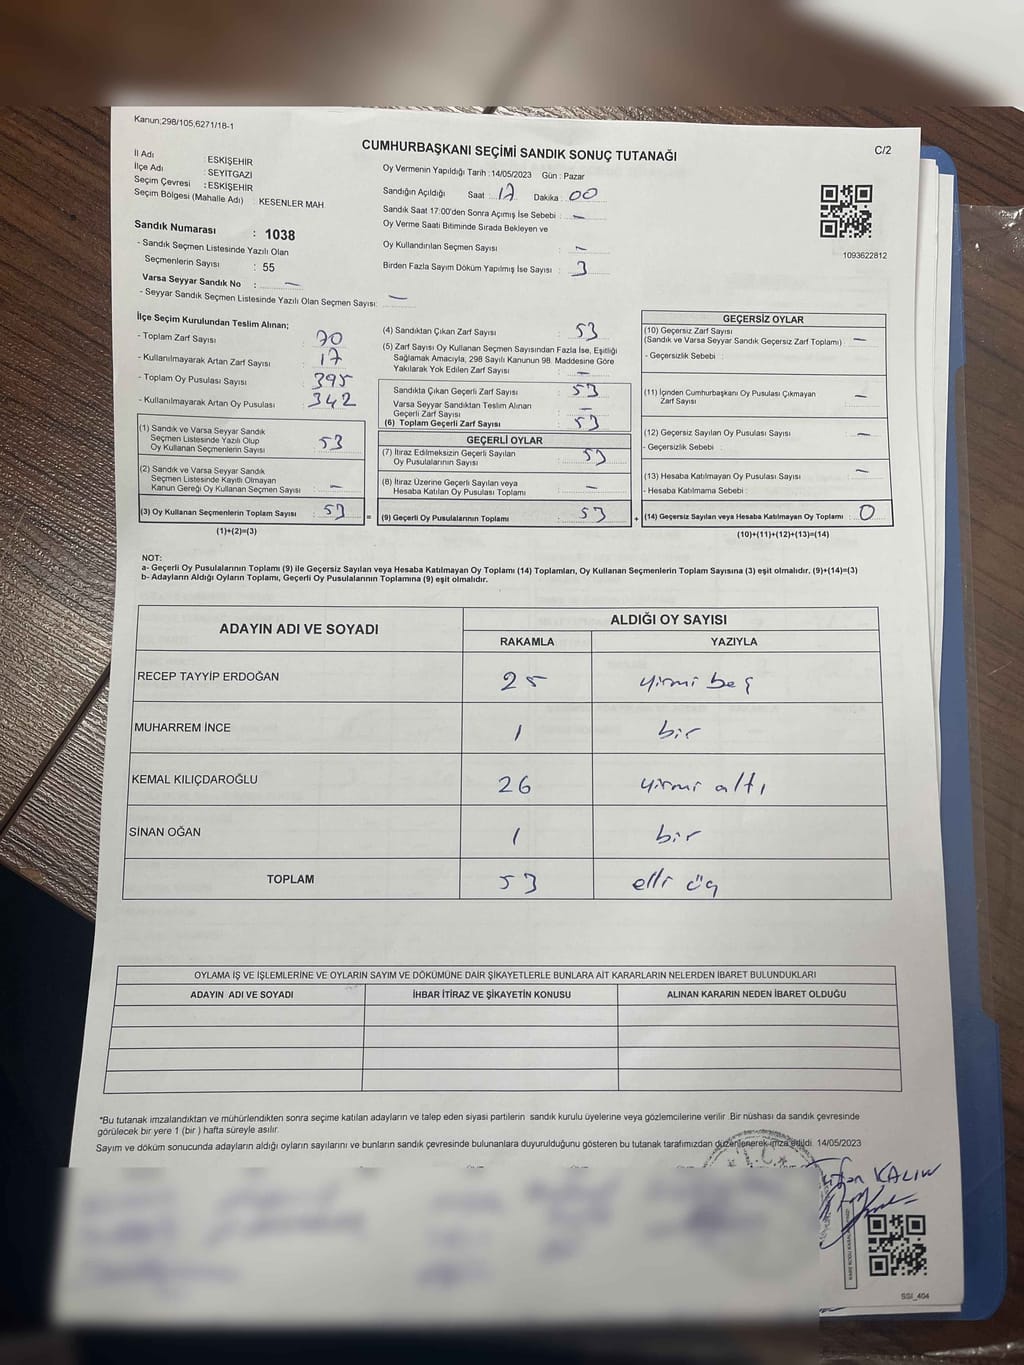 Kanun;298/105,6271/18-1
CUMHURBAŞKANI SEÇİMİ SANDIK SONUÇ TUTANAĞI
C/2
İl Adı : ESKİŞEHİR
İlçe Adı : SEYİTGAZİ
Seçim Çevresi : ESKİŞEHİR
Seçim Bölgesi (Mahalle Adı) : KESENLER MAH.
Sandık Numarası : 1038
- Sandık Seçmen Listesinde Yazılı Olan
Seçmenlerin Sayısı : 55
Varsa Seyyar Sandık No : —
- Seyyar Sandık Seçmen Listesinde Yazılı Olan Seçmen Sayısı: —
Oy Vermenin Yapıldığı Tarih : 14/05/2023 Gün : Pazar
Sandığın Açıldığı Saat 17 Dakika : 00
Sandık Saat 17:00'den Sonra Açımış İse Sebebi : —
Oy Verme Saati Bitiminde Sırada Bekleyen ve
Oy Kullandırılan Seçmen Sayısı : —
Birden Fazla Sayım Döküm Yapılmış İse Sayısı : 3
1093622812
İlçe Seçim Kurulundan Teslim Alınan;
- Toplam Zarf Sayısı : 70
- Kullanılmayarak Artan Zarf Sayısı : 17
- Toplam Oy Pusulası Sayısı : 395
- Kullanılmayarak Artan Oy Pusulası : 342
(1) Sandık ve Varsa Seyyar Sandık
Seçmen Listesinde Yazılı Olup
Oy Kullanan Seçmenlerin Sayısı : 53
(2) Sandık ve Varsa Seyyar Sandık
Seçmen Listesinde Kayıtlı Olmayan
Kanun Gereği Oy Kullanan Seçmen Sayısı : —
(3) Oy Kullanan Seçmenlerin Toplam Sayısı : 53
(1)+(2)=(3)
=
(4) Sandıktan Çıkan Zarf Sayısı : 53
(5) Zarf Sayısı Oy Kullanan Seçmen Sayısından Fazla İse, Eşitliği
Sağlamak Amacıyla, 298 Sayılı Kanunun 98. Maddesine Göre
Yakılarak Yok Edilen Zarf Sayısı : —
Sandıkta Çıkan Geçerli Zarf Sayısı : 53
Varsa Seyyar Sandıktan Teslim Alınan
Geçerli Zarf Sayısı : —
(6) Toplam Geçerli Zarf Sayısı : 53
GEÇERLİ OYLAR
(7) İtiraz Edilmeksizin Geçerli Sayılan
Oy Pusulalarının Sayısı : 53
(8) İtiraz Üzerine Geçerli Sayılan veya
Hesaba Katılan Oy Pusulası Toplamı : —
(9) Geçerli Oy Pusulalarının Toplamı : 53
+
GEÇERSİZ OYLAR
(10) Geçersiz Zarf Sayısı
(Sandık ve Varsa Seyyar Sandık Geçersiz Zarf Toplamı) : —
- Geçersizlik Sebebi :
(11) İçinden Cumhurbaşkanı Oy Pusulası Çıkmayan
Zarf Sayısı : —
(12) Geçersiz Sayılan Oy Pusulası Sayısı : —
- Geçersizlik Sebebi :
(13) Hesaba Katılmayan Oy Pusulası Sayısı : —
- Hesaba Katılmama Sebebi :
(14) Geçersiz Sayılan veya Hesaba Katılmayan Oy Toplamı : 0
(10)+(11)+(12)+(13)=(14)
NOT:
a- Geçerli Oy Pusulalarının Toplamı (9) ile Geçersiz Sayılan veya Hesaba Katılmayan Oy Toplamı (14) Toplamları, Oy Kullanan Seçmenlerin Toplam Sayısına (3) eşit olmalıdır. (9)+(14)=(3)
b- Adayların Aldığı Oyların Toplamı, Geçerli Oy Pusulalarının Toplamına (9) eşit olmalıdır.
ADAYIN ADI VE SOYADI
ALDIĞI OY SAYISI
RAKAMLA YAZIYLA
RECEP TAYYİP ERDOĞAN 25 yirmi beş
MUHARREM İNCE 1 bir
KEMAL KILIÇDAROĞLU 26 yirmi altı
SİNAN OĞAN 1 bir
TOPLAM 53 elli üç
OYLAMA İŞ VE İŞLEMLERİNE VE OYLARIN SAYIM VE DÖKÜMÜNE DAİR ŞİKAYETLERLE BUNLARA AİT KARARLARIN NELERDEN İBARET BULUNDUKLARI
ADAYIN ADI VE SOYADI İHBAR İTİRAZ VE ŞİKAYETİN KONUSU ALINAN KARARIN NEDEN İBARET OLDUĞU
*Bu tutanak imzalandıktan ve mühürlendikten sonra seçime katılan adayların ve talep eden siyasi partilerin sandık kurulu üyelerine veya gözlemcilerine verilir. Bir nüshası da sandık çevresinde
görülecek bir yere 1 (bir ) hafta süreyle asılır.
Sayım ve döküm sonucunda adayların aldığı oyların sayılarını ve bunların sandık çevresinde bulunanlara duyurulduğunu gösteren bu tutanak tarafımızdan düzenlenerek imza edildi. 14/05/2023
KALIN
SSI_404